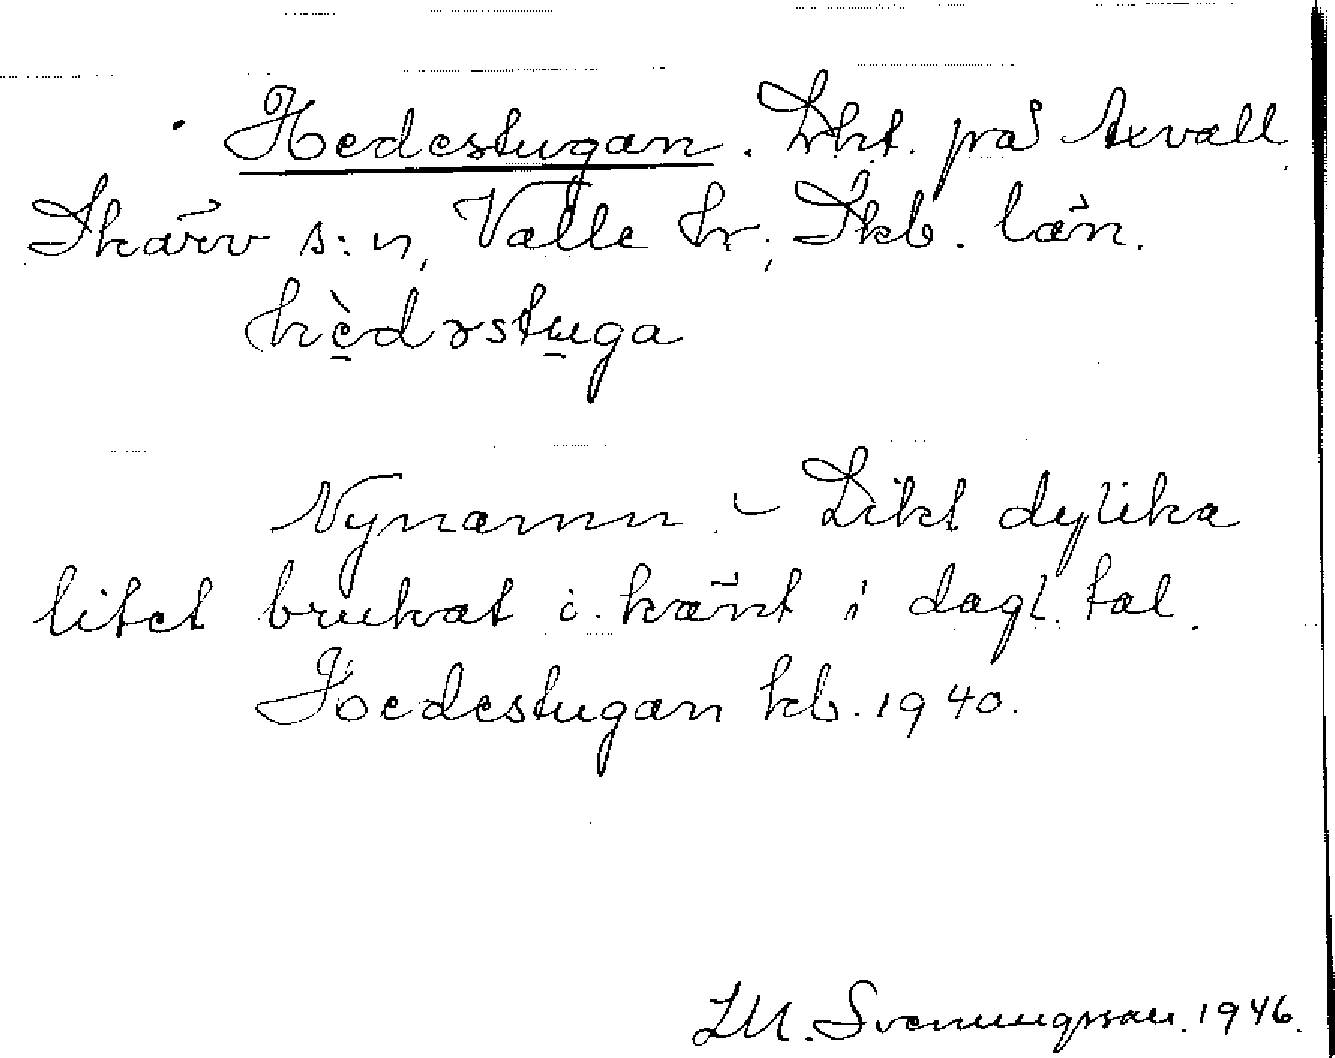 Hedestugan. Lht. på Axvall
Skärv s:n, Valle hr, Skb. län.
hèdəstuga
Nynamn. - Likt dylika
litet brukat o. känt i dagl. tal.
Hedestugan kb. 1940.
L M. Svenungsson. 1946.